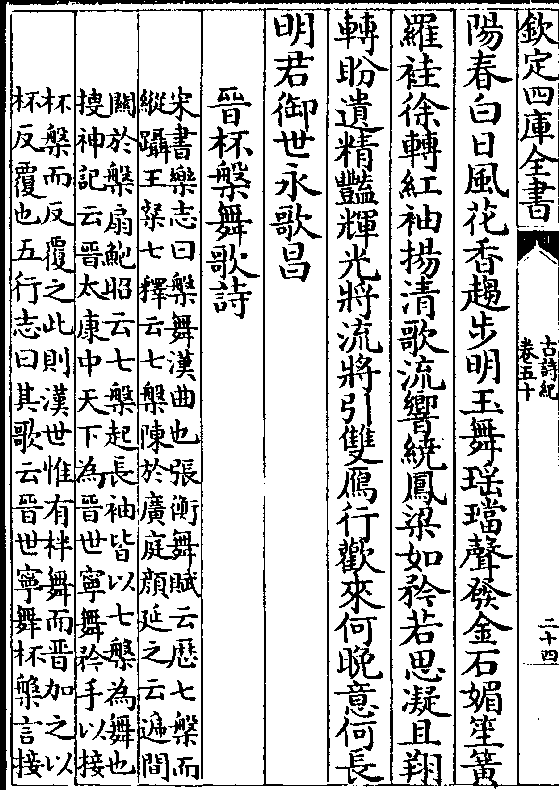 欽定四庫全書
古詩紀
卷五十
二十四
陽春白日風花香趨步明玉舞瑶璫聲發金石媚笙簧
羅袿徐轉紅袖揚清歌流響繞鳳梁如矜若思凝且翔
轉盼遺精豔輝光將流將引雙鴈行歡來何晚意何長
明君御世永歌昌
晉杯槃舞歌詩
宋書樂志曰槃舞漢曲也張衡舞賦云歷七槃而
縱躡王粲七釋云七槃陳於廣庭顔延之云遞間
關於槃扇鮑昭云七槃起長袖皆以七槃為舞也
搜神記云晉太康中天下為晉世寧舞矜手以接
杯槃而反覆之此則漢世惟有柈舞而晉加之以
杯反覆也五行志曰其歌云晉世寧舞杯槃言接